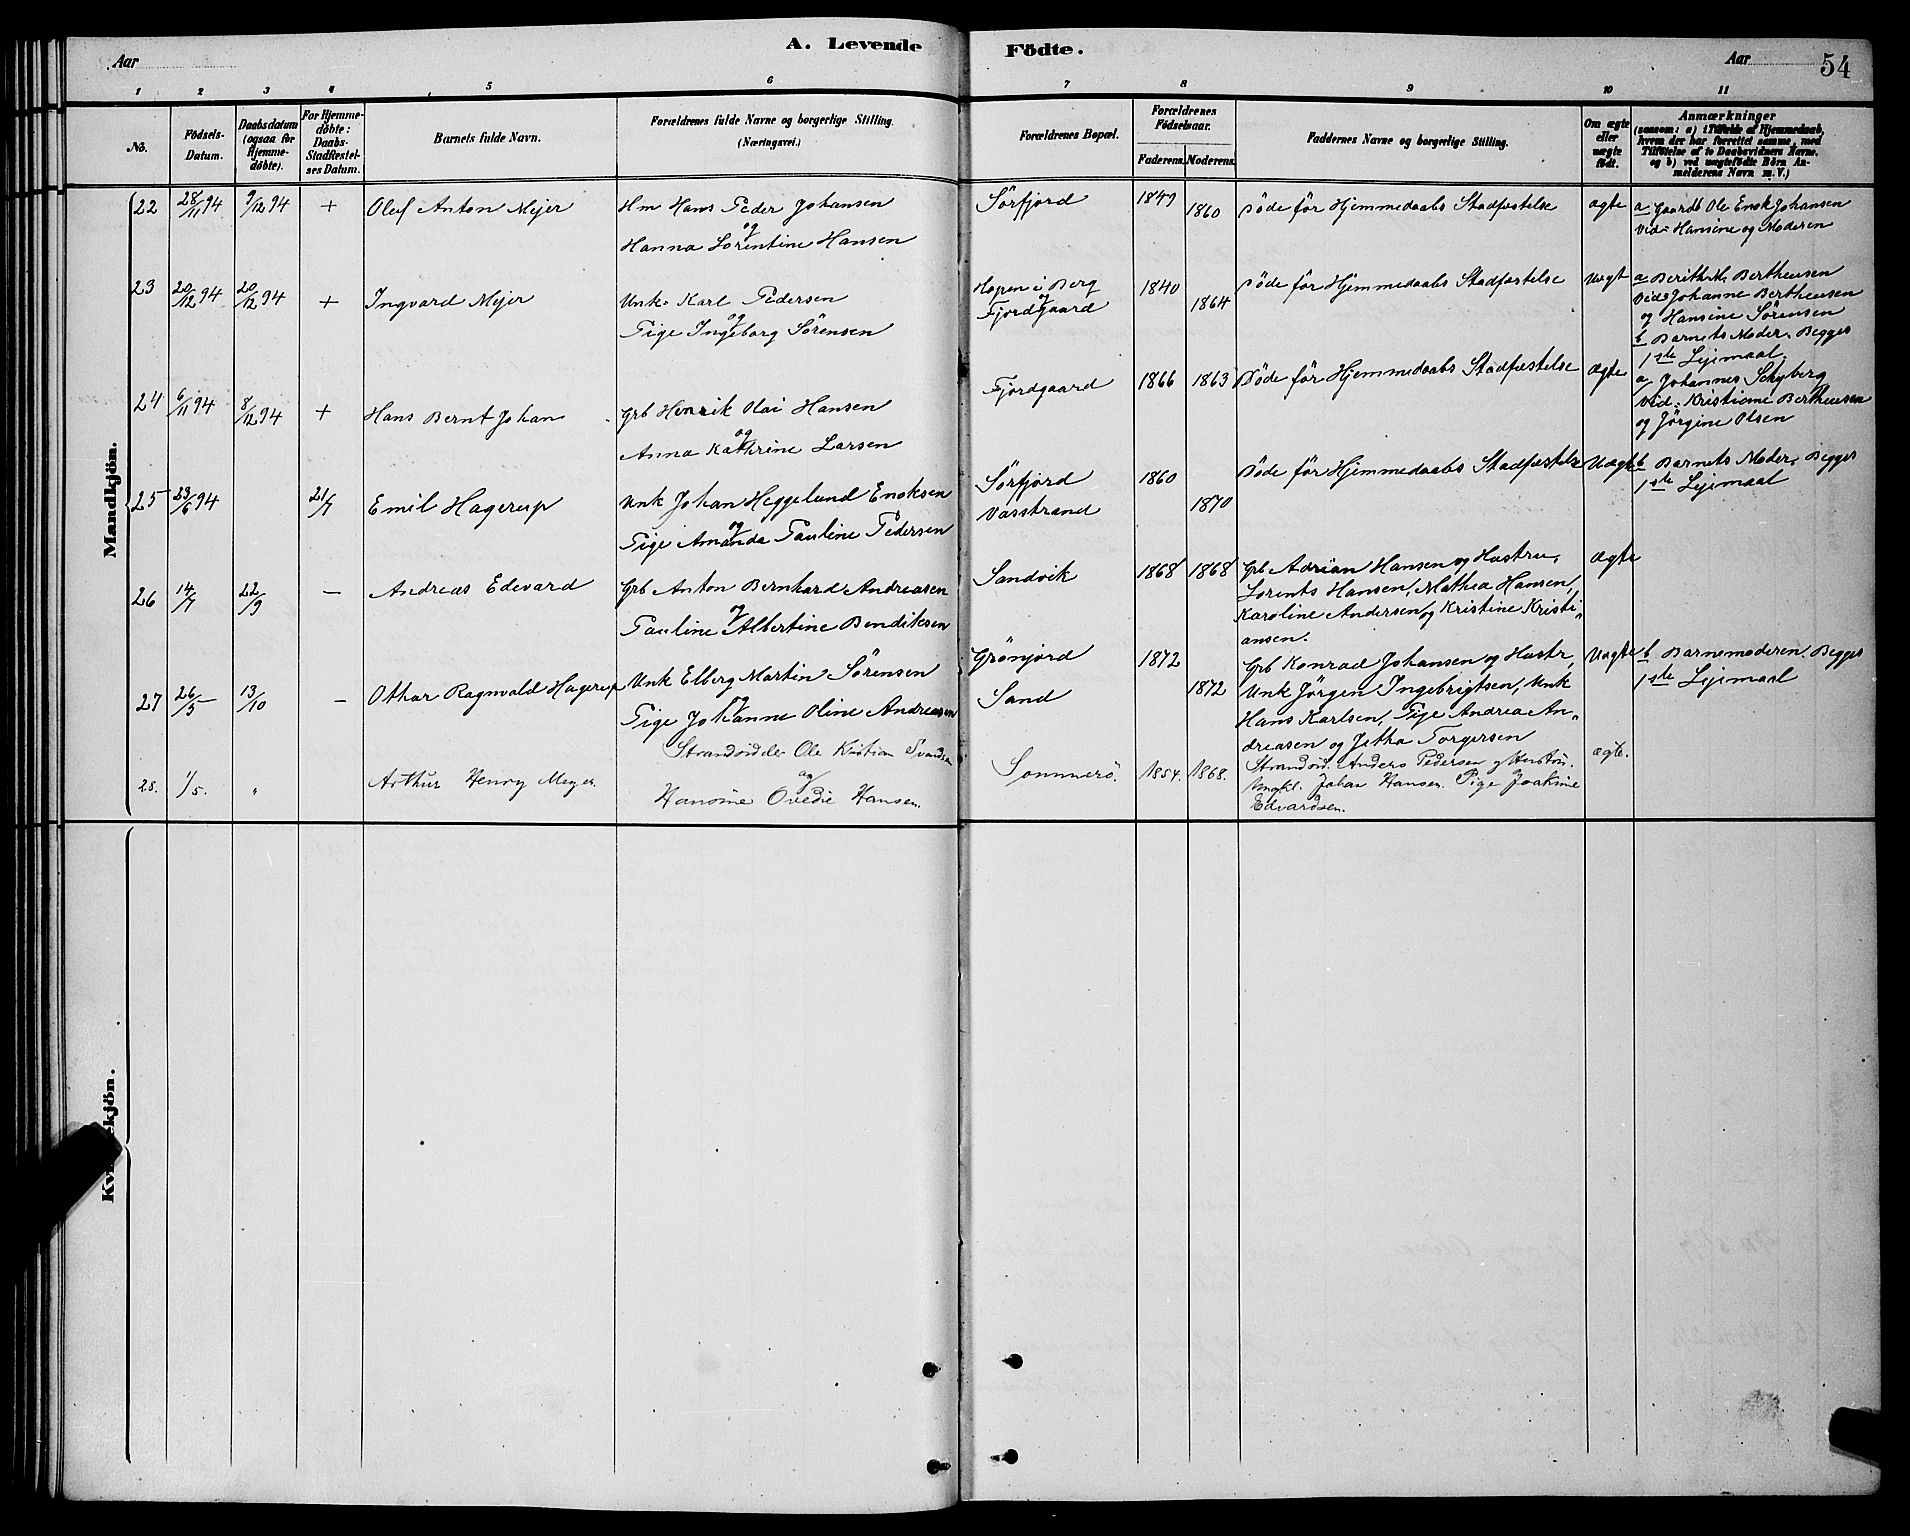 A. Levende Födte.
Aar Aar 54
1 2 3 4 5 6 7 8 9 10 11
No.
Födsels-
Datum.
Daabsdatum
(ogsaa for
Hjemme-
döbte).
For Hjemme-
döbte:
Daabs-
Stadfæstel-
ses Datum.
Barnets fulde Navn.
Forældrenes fulde Navne og borgerlige Stilling.
(Næringsvei.)
Forældrenes Bopæl.
Forældrenes
Födselsaar.
Faderens. Moderens.
Faddernes Navne og borgerlige Stilling.
Om ægte
eller
uægte
födt.
Anmærkninger
(saasom: a) i Tilfælde af Hjemmedaab,
hvem der har forrettet samme, med
Tilföielse af to Daabsvidners Navne,
og b) ved uægtefödte Börn An-
melderens Navn m. V.)
Mandkjön.
22 28/11 94 9/12 94 + Olef Anton Mejer Hm Hans Peder Johansen
og
Hanna Lorentine Hansen
Sörfjord 1849 1860 Döde för Hjemmedaabs Stadfæstelse ægte a Gaardb Ole Enok Johansen
Vid: Hansine og Moderen
23 20/12 94 20/12 94 + Ingvard Mejer Unk: Karl Pedersen
og
Pige Ingeborg Sörensen
Hopen i Berg
og
Fjordgaard
1840 1864 Döde för Hjemmedaabs Stadfæstelse Uægt a Berith M. Bertheusen
Vid: Johanne Bertheusen
og Hansine Sörensen
b Barnets Moder. Begges
1ste Lejemaal.
24 6/11 94 8/12 94 + Hans Bernt Johan Grb Henrik Olai Hansen
og
Anna Kathrine Larsen
Fjordgaard 1866 1863 Döde för Hjemmedaabs Stadfæstelse ægte a Johannes Schyberg
Vid: Kristiane Bertheusen
og Jörgine Olsen
25 23/6 94 21/7 Emil Hagerup Unk Johan Heggelund Enoksen
og
Pige Amanda Pauline Pedersen
Sörfjord
Vasstrand
1860 1870 Döde för Hjemmedaabs Stadfæstelse Uægte b Barnets Moder. Begges
1ste Lejemaal
26 14/7 22/9 — Andreas Edevard Grb Anton Bernhard Andreasen
og
Pauline Albertine Bendiksen
Sandvik 1868 1868 Grb Adrian Hansen og Hustru,
Lorents Hansen, Mathea Hansen,
Karoline Andersen og Kristine Kristi„
ansen.
ægte
27 26/5 13/10 — Othar Ragnvald Hagerup Unk Elberg Martin Sörensen
og
Pige Johanne Oline Andreasen
Grönjord
Sand
1872 1872 Grb Konrad Johansen og Hustr,
Unk Jörgen Ingebrigtsen, Unk
Hans Karlsen, Pige Andrea An„
dreasen og Jetha Torgersen
Uægte b Barnemoderen. Begges
1ste Lejemaal
28. 1/5. „ Arthur Henry Meyer. Strandsidder Ole Kristian Svendsen
og
Hansine Ovedie Hansen.
Sommerö. 1854. 1868. Strandsid. Anders Pedersen og Hustru.
Ungkl. Johan Hansen. Pige Joakine
Edvardsen.
ægte.
Kvi kjön.